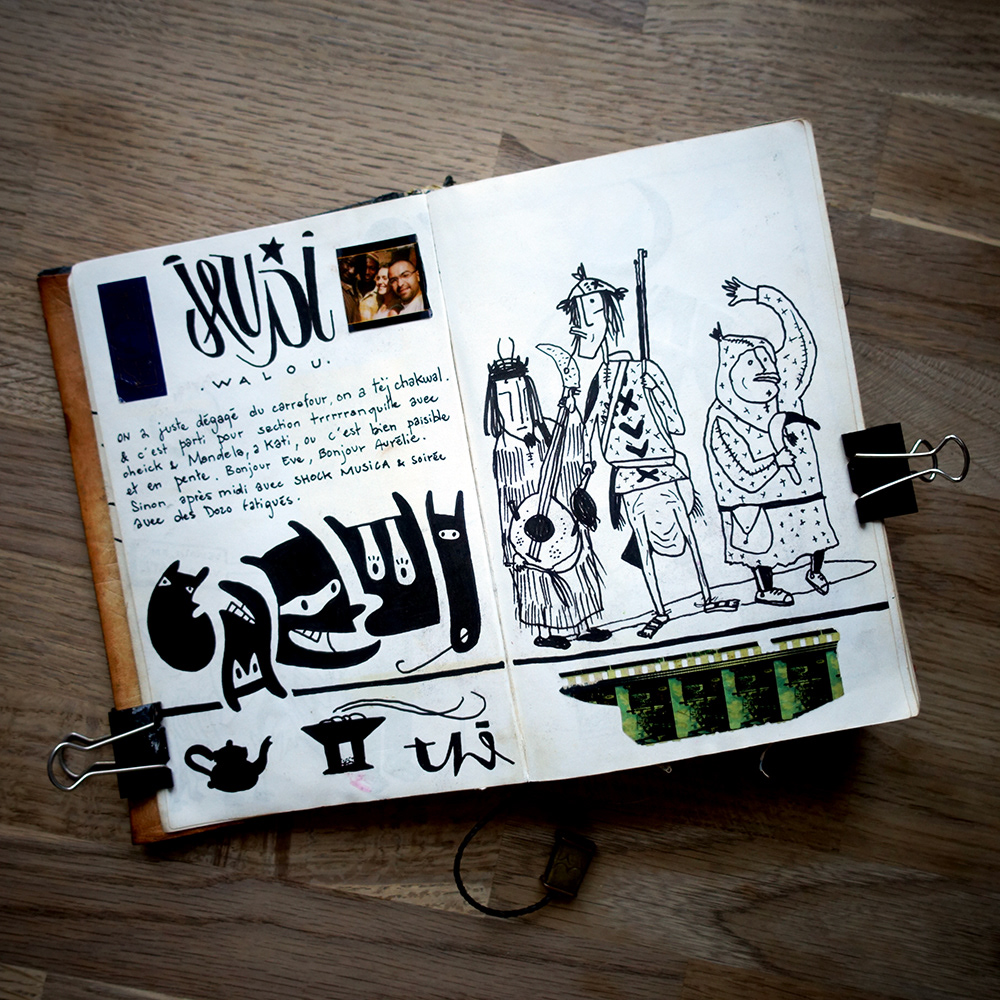 jeudi
. WALOU .
on a juste dégagé du carrefour, on a tèj chakwal.
& c'est parti pour section trrrrranquille avec
cheick & Mandela, a Kati, ou c'est bien paisible
et en pente. Bonjour Eve, Bonjour Aurélie.
Sinon après midi avec SHOCK MUSICA & soirée
avec des Dozo fatigués.
thé